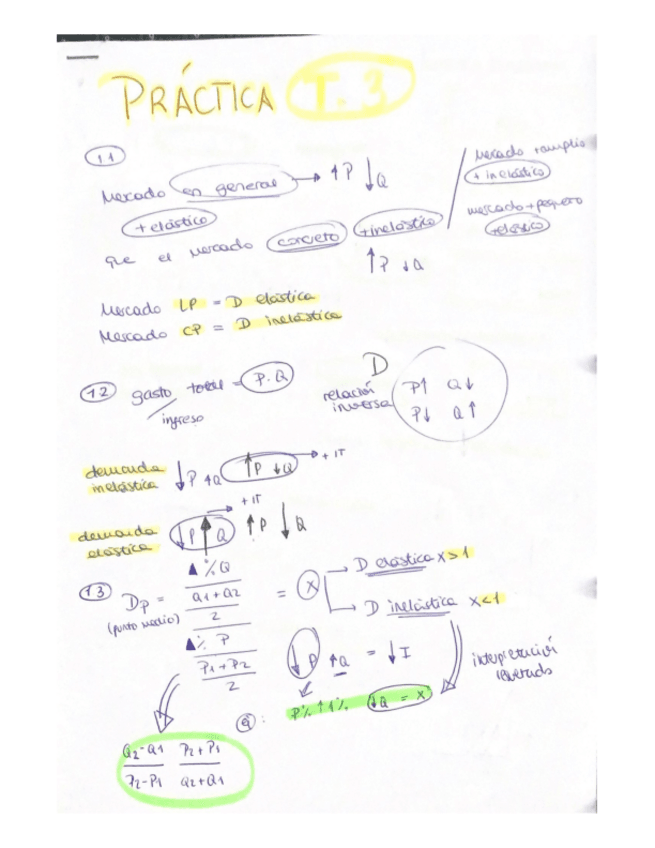 PRÁCTICA T.3
11
Mercado en general → ↑P ↓Q
+ elástico
que el mercado concreto + inelástico
↑P ↓Q
Mercado + amplio
+ inelástico
mercado + pequeño
+ elástico
Mercado LP = D elástica
Mercado CP = D inelástica
12 gasto total = P.Q
/ingreso
D
relación inversa
P↑ Q↓
P↓ Q↑
demanda inelástica ↓P ↑Q ↑P ↓Q → + IT
demanda elástica ↓P ↑Q → + IT ↑P ↓Q
13 Dp =
(punto medio)
▲%Q
Q1+Q2
2
▲% P
P1+P2
2
= X
→ D elástica x>1
→ D inelástica x<1
↓P ↑Q = ↓I
interpretación
P% ↑1% ↓Q = x
Q2-Q1 P2+P1
P2-P1 Q2+Q1